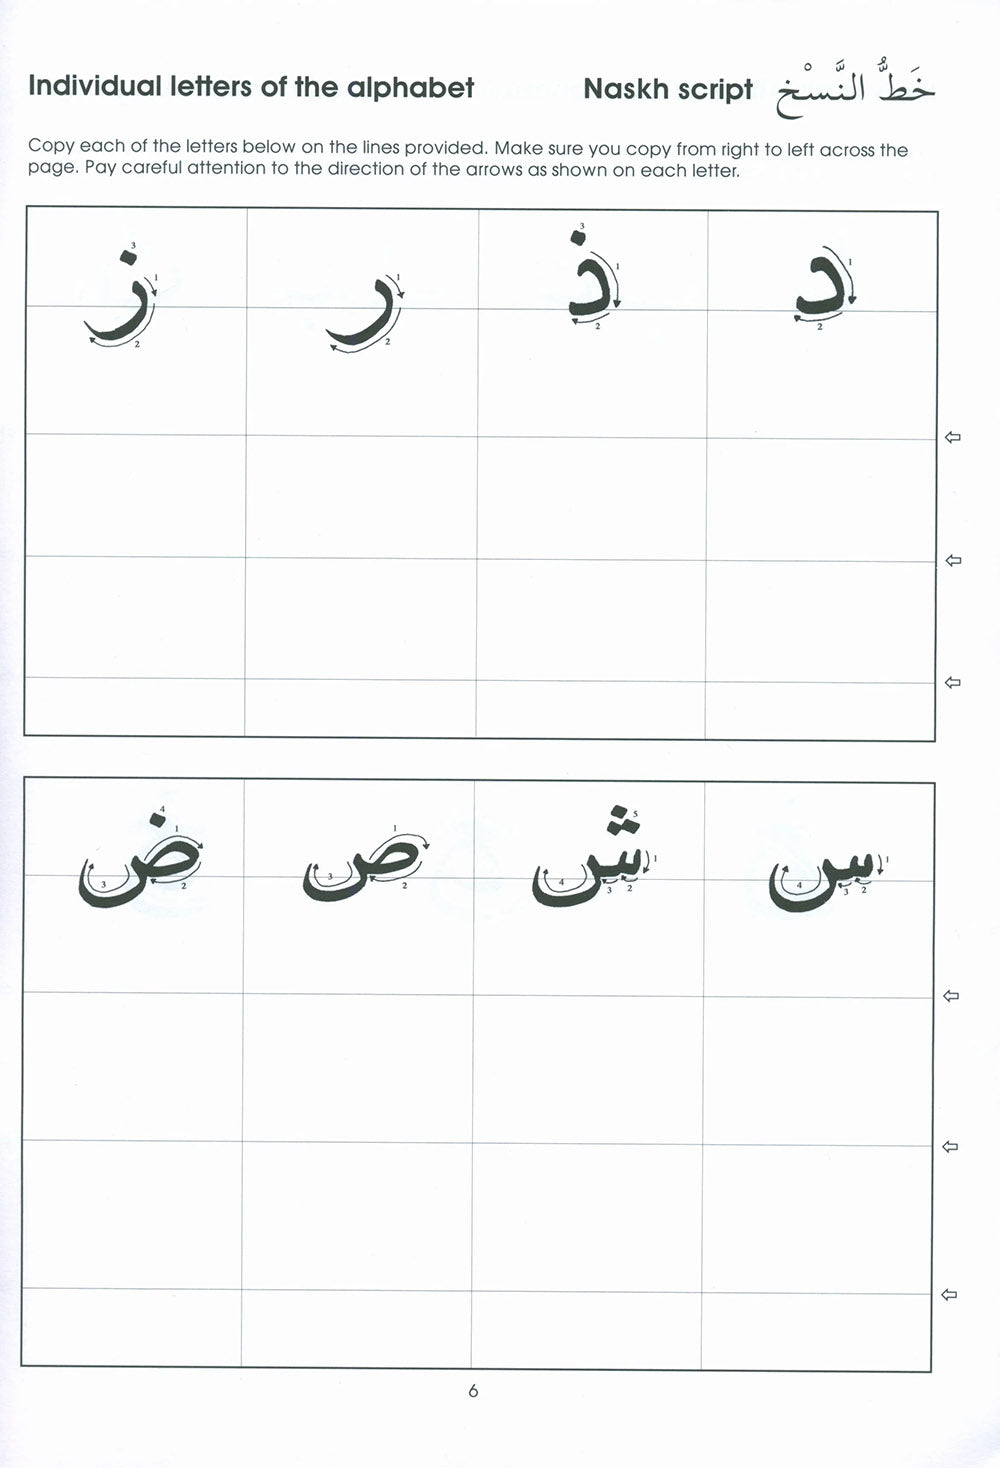 Individual letters of the alphabet Naskh script خَطُّ النَّسْخ
Copy each of the letters below on the lines provided. Make sure you copy from right to left across the
page. Pay careful attention to the direction of the arrows as shown on each letter.
د ذ ر ز
1 2 1 2 3 1 2 1 2 3
س ش ص ض
1 2 3 4 1 2 3 4 5 1 2 3 1 2 3 4
6